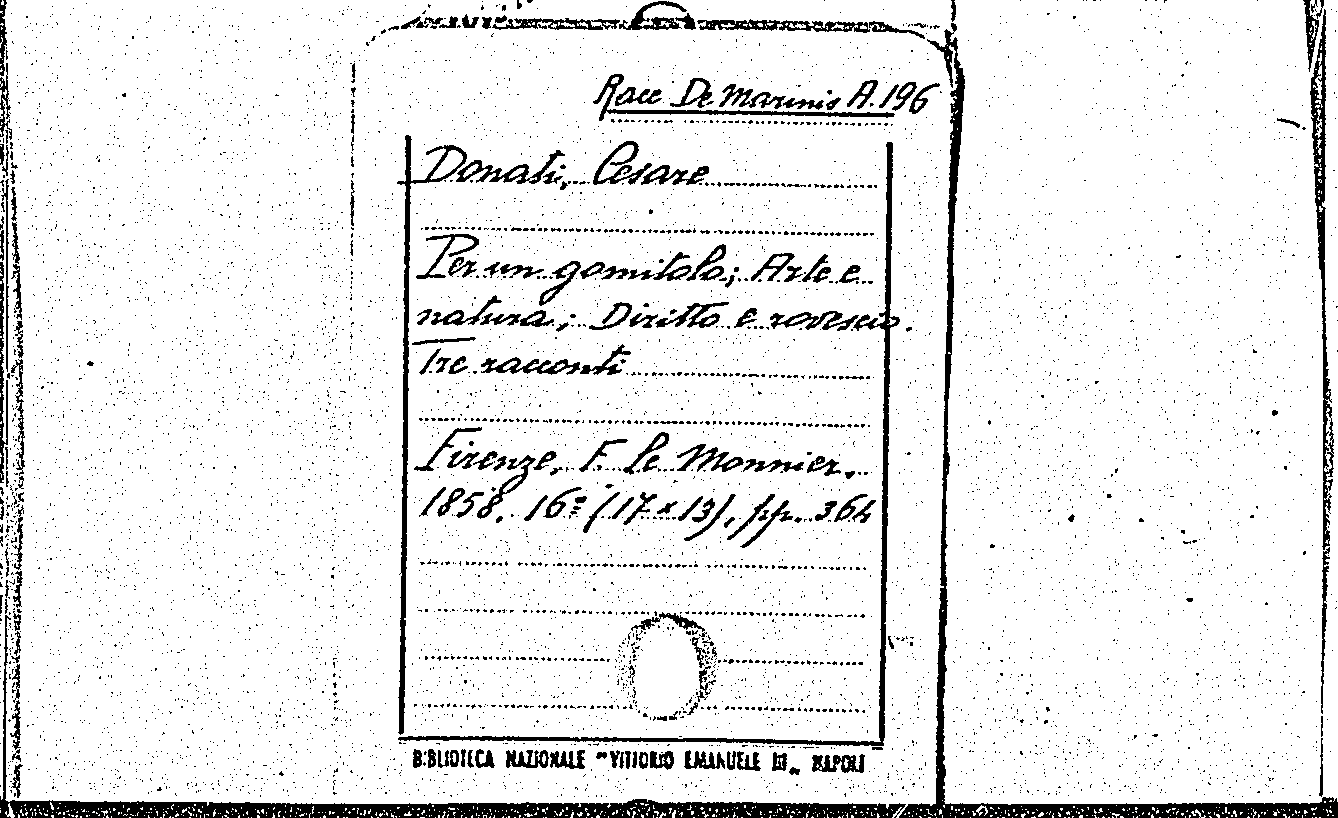 Racc De Marinis A.196
Donati, Cesare
Per un gomitolo; Arte e
natura; Diritto e rovescio.
Tre racconti
Firenze, F. Le Monnier,
1858, 16º (17 x 13), pp. 364
BIBLIOTECA NAZIONALE "VITTORIO EMANUELE III„ NAPOLI